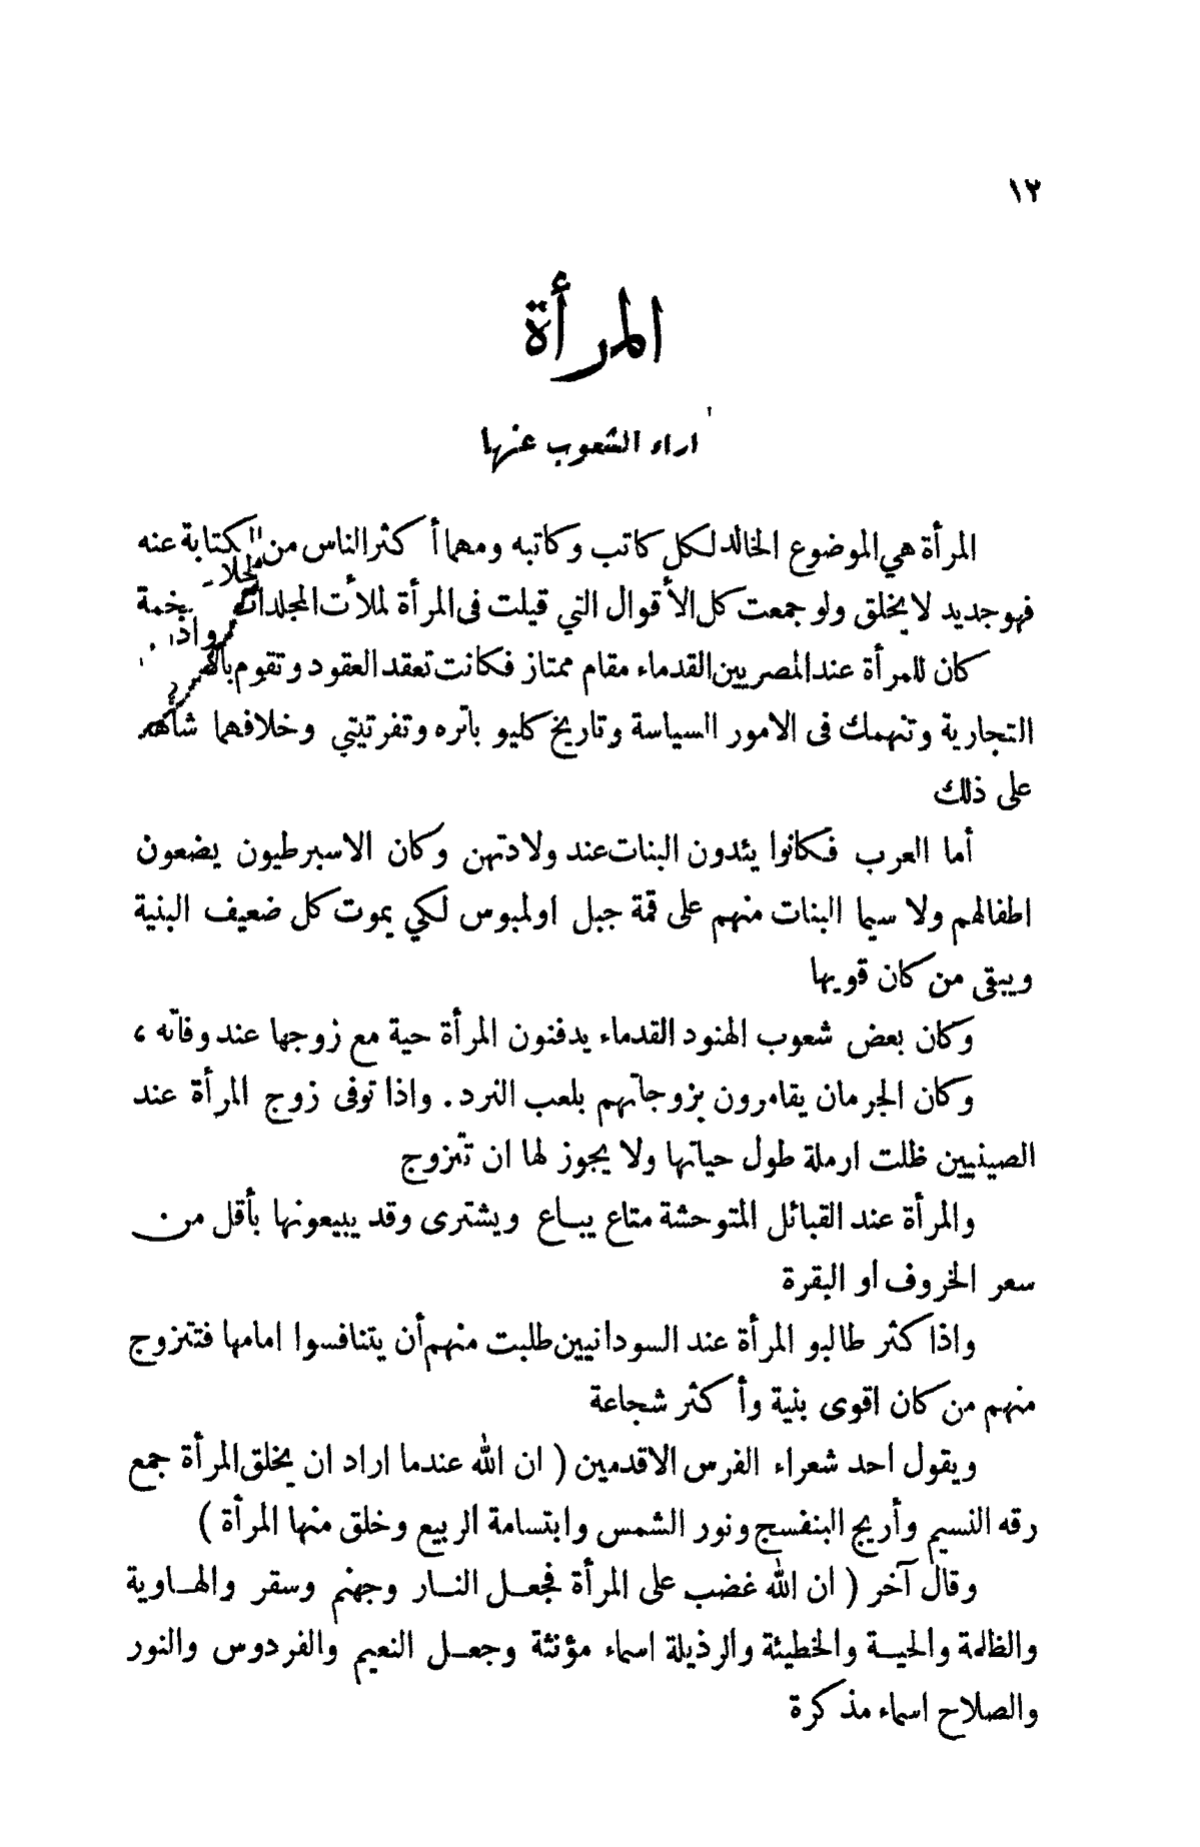 ١٢
المرأة
اراء الشعوب عنها
المرأة هي الموضوع الخالد لكل كاتب وكاتبه ومهما أكثر الناس من الكتابة عنه
فهو جديد لا يخلق ولو جمعت كل الأقوال التي قيلت فى المرأة لملأت المجلدات
كان للمرأة عند المصريين القدماء مقام ممتاز فكانت تعقد العقود وتقوم
التجارية وتنهمك فى الامور السياسة وتاريخ كليو باتره وتفرتيتي وخلافهما
على ذلك
أما العرب فكانوا يئدون البنات عند ولادتهن وكان الاسبرطيون يضعون
اطفالهم ولا سيما البنات منهم على قمة جبل اولمبوس لكي يموت كل ضعيف البنية
ويبقى من كان قويها
وكان بعض شعوب الهنود القدماء يدفنون المرأة حية مع زوجها عند وفاته ،
وكان الجرمان يقامرون بزوجاتهم بلعب النرد . واذا توفى زوج المرأة عند
الصينيين ظلت ارملة طول حياتها ولا يجوز لها ان تتزوج
والمرأة عند القبائل المتوحشة متاع يباع ويشترى وقد يبيعونها بأقل من
سعر الخروف او البقرة
واذا كثر طالبو المرأة عند السودانيين طلبت منهم أن يتنافسوا امامها فتتزوج
منهم من كان اقوى بنية وأكثر شجاعة
ويقول احد شعراء الفرس الاقدمين ( ان الله عندما اراد ان يخلق المرأة جمع
رقه النسيم وأريج البنفسج ونور الشمس وابتسامة الربيع وخلق منها المرأة )
وقال آخر ( ان الله غضب على المرأة فجعل النار وجهنم وسقر والهاوية
والظلمة والحية والخطيئة والرذيلة اسماء مؤنثة وجعل النعيم والفردوس والنور
والصلاح اسماء مذكرة